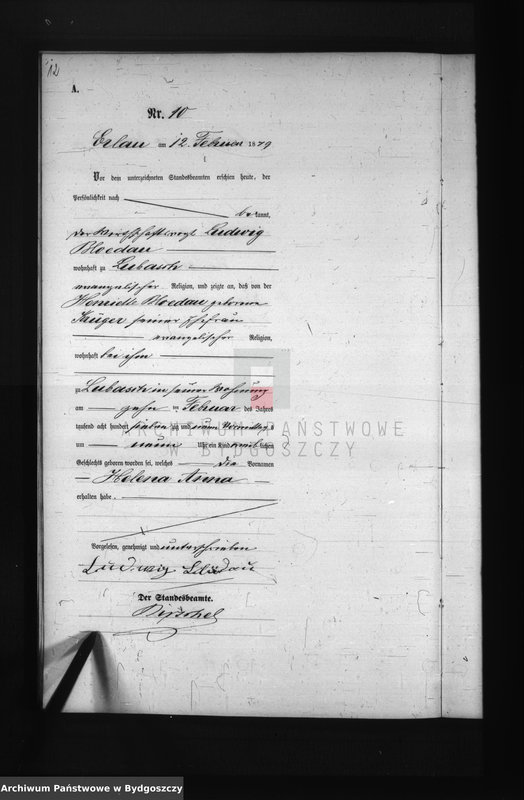 12
A.
Nr. 10
Erlau am 12. Februar 1879
Vor dem unterzeichneten Standesbeamten erschien heute, der
Persönlichkeit nach
bekannt,
der Wirthschaftsvogt Ludwig
Bloedau
wohnhaft zu Lubasch
evangelischer Religion, und zeigte an, daß von der
Henriette Bloedau geborene
Krüger seiner Ehefrau
evangelischer Religion,
wohnhaft bei ihm
zu Lubasch in seiner Wohnung
am zehn ten Februar des Jahres
tausend acht hundert siebenzig und neun Vormittags
um neun Uhr ein Kind weiblichen
Geschlechts geboren worden sei, welches die Vornamen
Helena Anna
erhalten habe.
Vorgelesen, genehmigt und unterschrieben
Ludwig Blödau
Der Standesbeamte.
ARCHIWUM PAŃSTWOWE
W BYDGOSZCZY
Archiwum Państwowe w Bydgoszczy